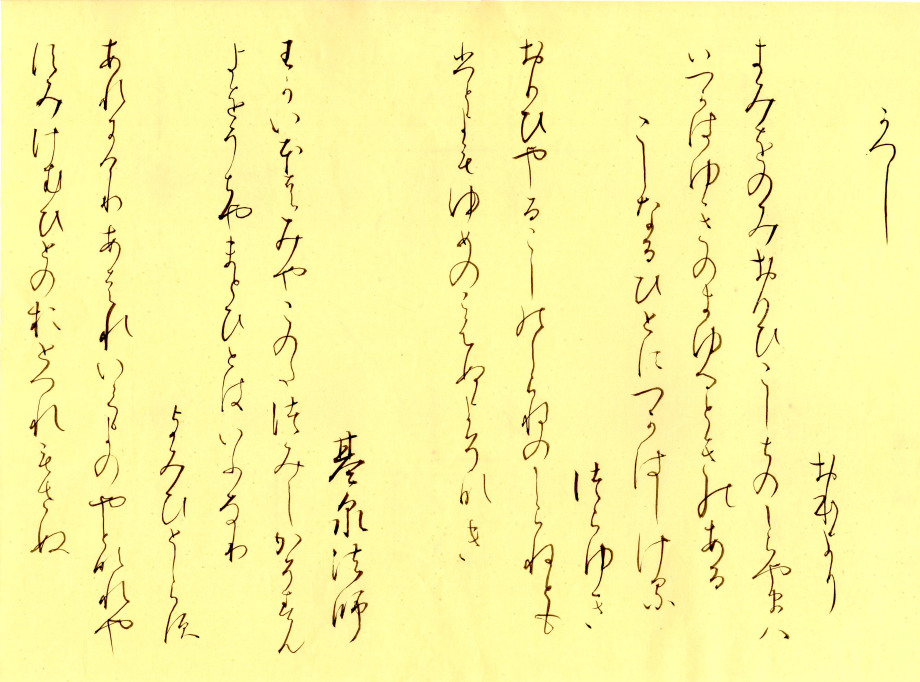 かへし
おほより
きみをのみおもひこしちのしらやまハ
いつかはゆきのきゆるときのある
こしなるひとにつかはしける
つらゆき
おもひやるこしのしらねのしらねとも
ひとよもゆめのこえぬよそなき
基泉法師
わかいほはみやこのたつみしかそすむ
よをうちやまとひとはいふなり
よみひとしらす
あれにけりあはれいくよのやとなれや
すみけむひとのおとつれもせぬ